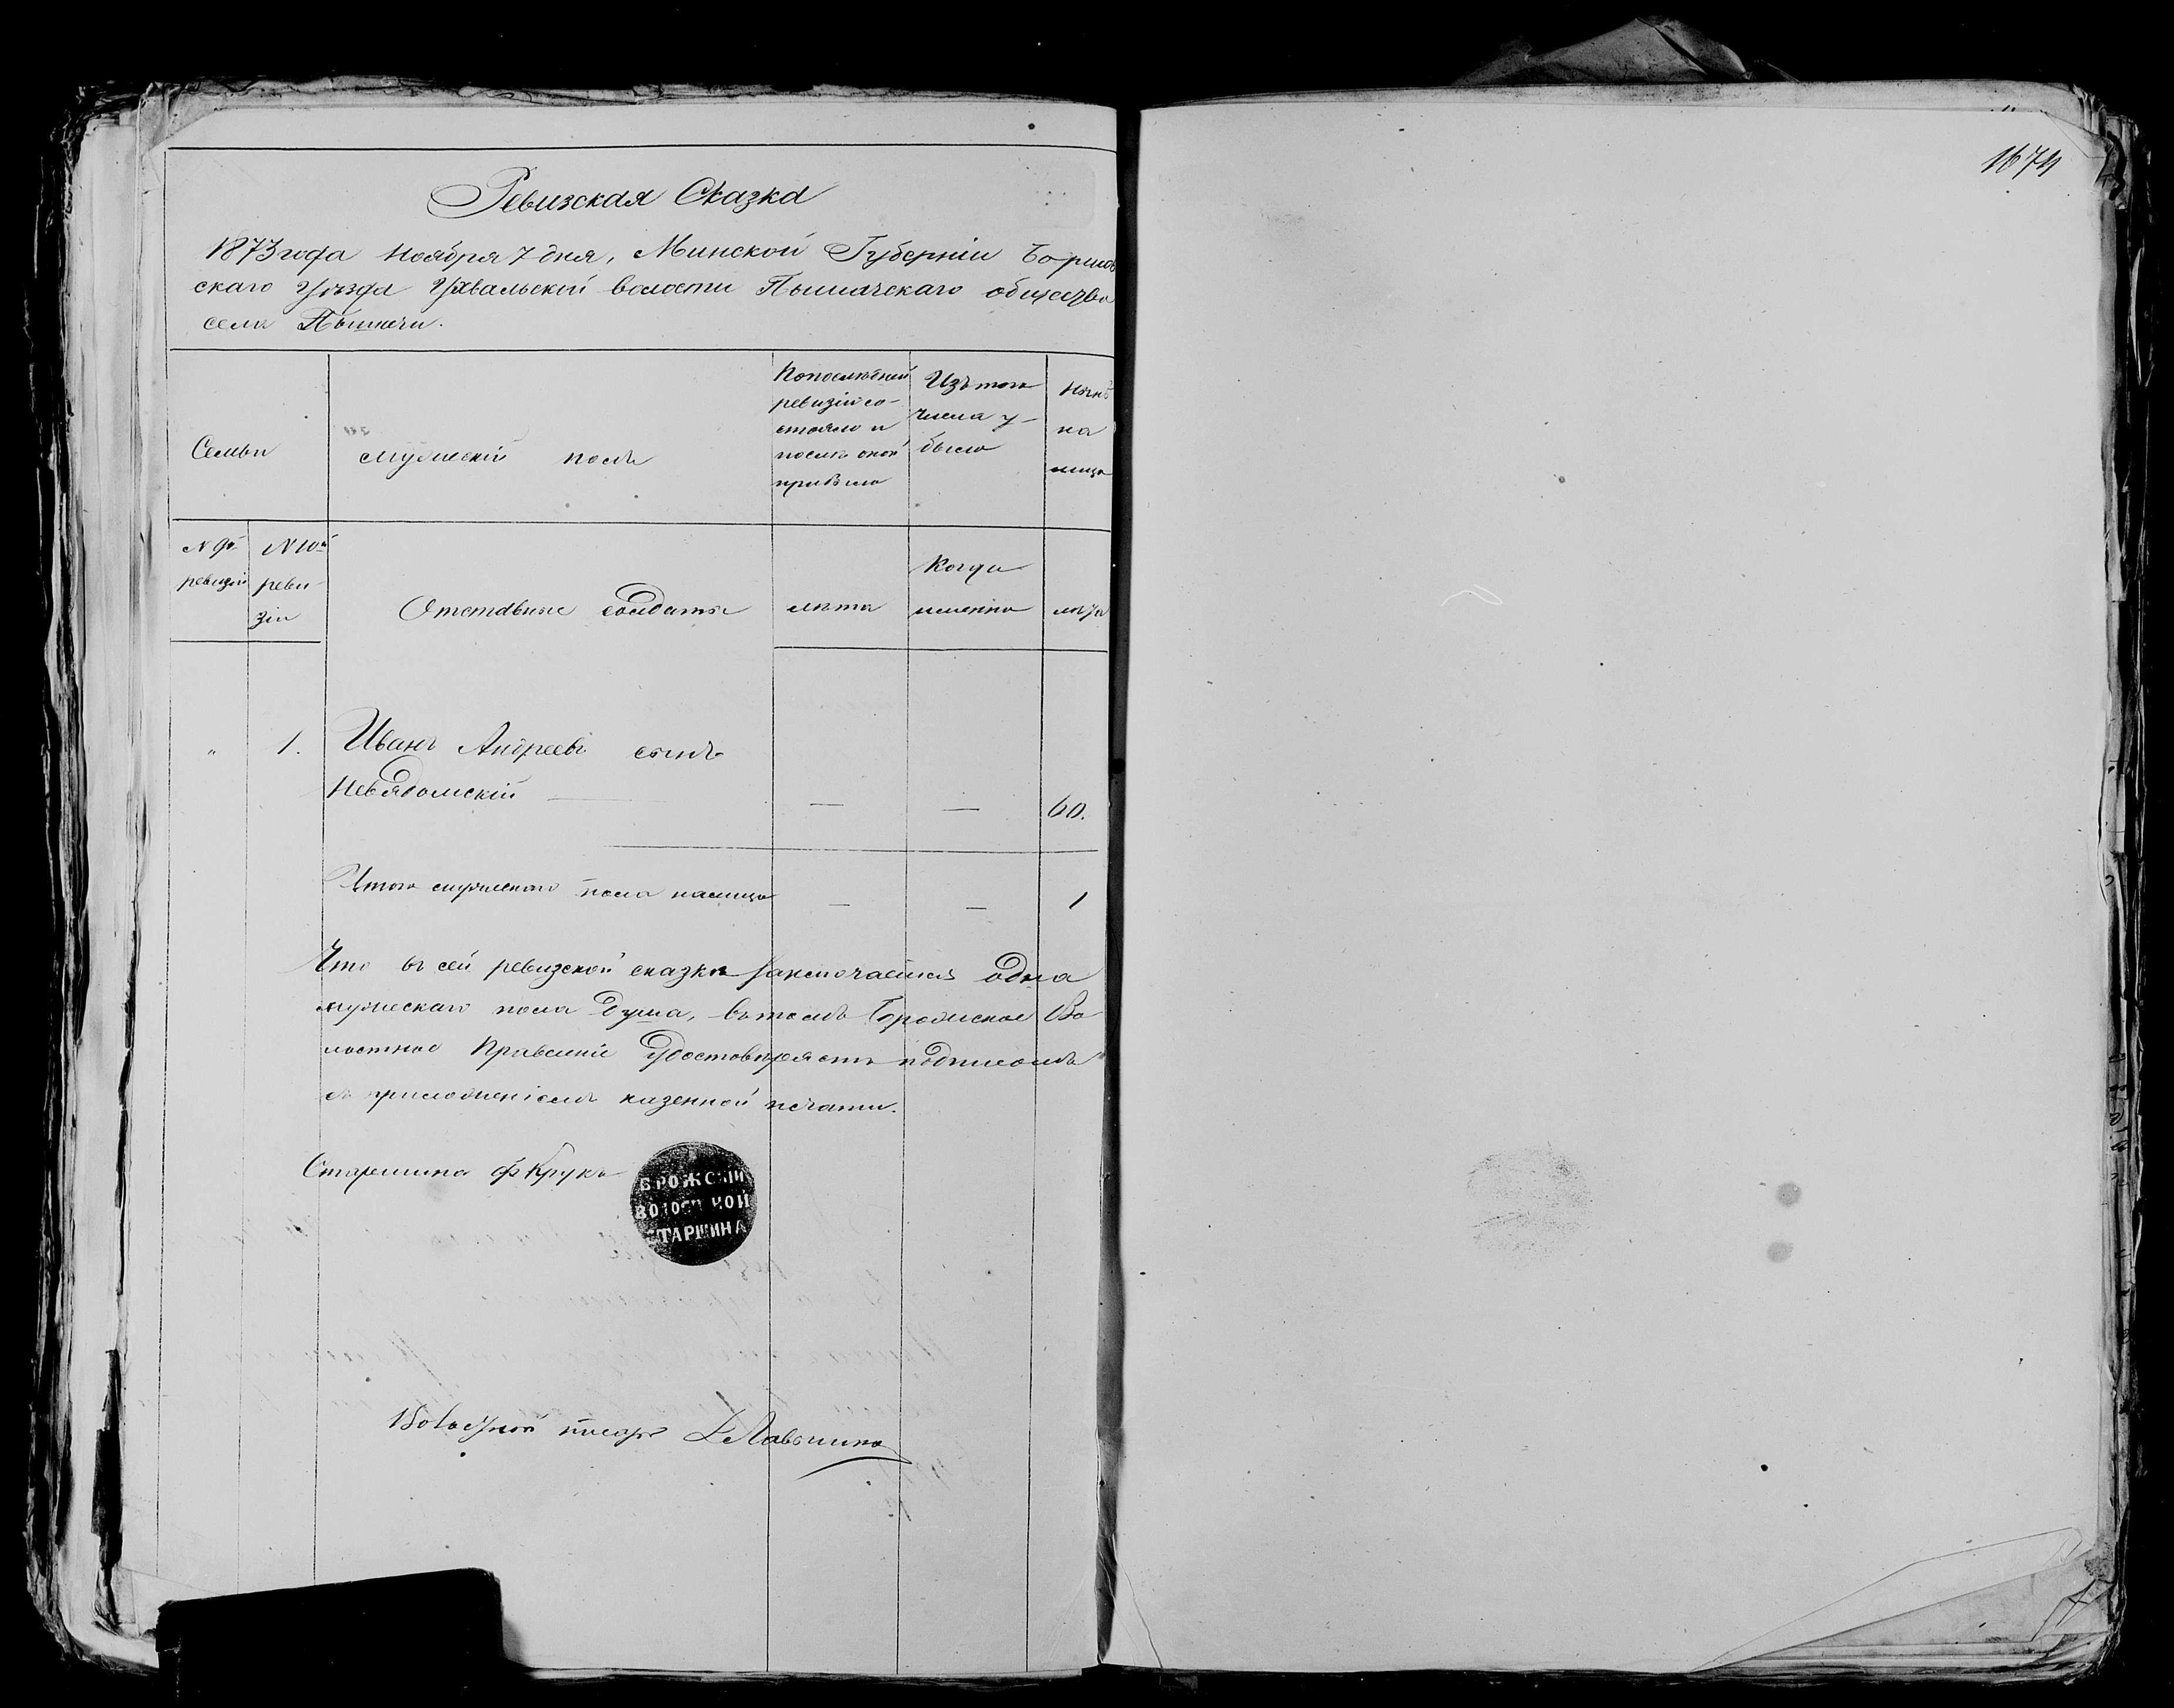 1674
Ревизская Сказка
1873 года Ноября 7 дня, Минской Губерніи Борисов
скаго Уѣзда Ухвальской волости Пышачскаго общества
села Пышачи.
Семьи
мужескій полъ
По последней
ревизіи со-
стояло и
послѣ оной
прибыло
Изъ того
числа у-
было
Нынѣ
на
лицо
N 9й
ревизіи
N 10й
реви-
зіи
Отставные солдаты
лѣта
Когда
именно
лѣта
" 1. Иванъ Андреевъ сынъ
Невядомскій — — — 60.
Итого мужескаго пола налицо — — 1
Что въ сей ревизской сказкѣ заключается одна
мужескаго пола душа, въ томъ Волостное
лостное Правленіе удостовѣряетъ подписомъ
съ приложеніемъ казенной печати.
Старшина Ф Крукъ
БРОЖСКІЙ
ВОЛОСТНОЙ
СТАРШИНА
Волостной писарь